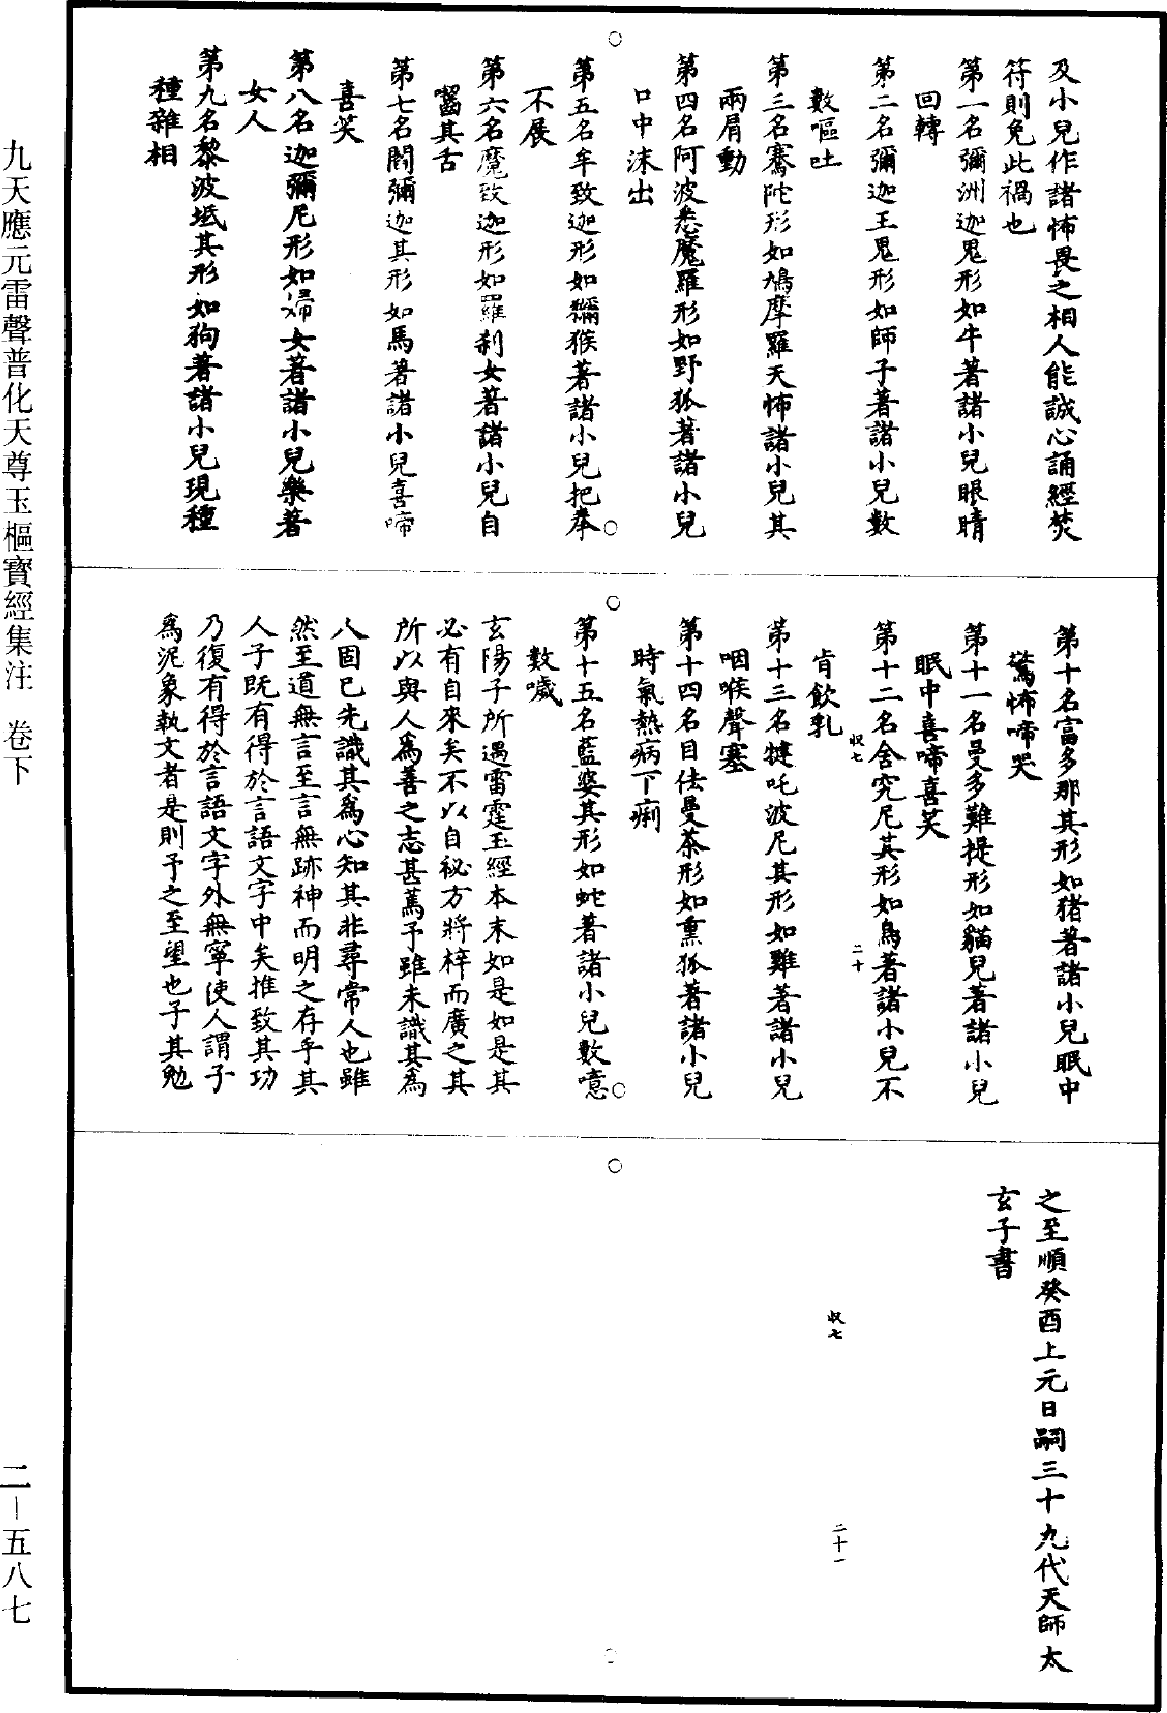 及小兒作諸怖畏之相人能誠心誦經焚
符則免此禍也
第一名彌洲迦鬼形如牛著諸小兒眼睛
回轉
第二名彌迦王鬼形如師子著諸小兒數
數嘔吐
第三名騫陀形如鳩摩羅天怖諸小兒其
兩肩動
第四名阿波悉魔羅形如野狐著諸小兒
口中沫出
第五名牟致迦形如獼猴著諸小兒把拳
不展
第六名魔致迦形如羅剎女著諸小兒自
囓其舌
第七名閻彌迦其形如馬著諸小兒喜啼
喜笑
第八名迦彌尼形如婦女著諸小兒樂著
女人
第九名黎波坻其形如狗著諸小兒現種
種雜相
第十名富多那其形如猪著諸小兒眠中
驚怖啼哭
第十一名曼多難提形如貓兒著諸小兒
眠中喜啼喜笑
第十二名舍究尼其形如鳥著諸小兒不
肯飲乳
収七
二十
第十三名揵吒波尼其形如雞著諸小兒
咽喉聲塞
第十四名目佉曼荼形如熏狐著諸小兒
時氣熱病下痢
第十五名藍婆其形如蛇著諸小兒數噫
數噦
玄陽子所遇雷霆玉經本末如是如是其
必有自來矣不以自祕方將梓而廣之其
所以與人為善之志甚篤予雖未識其為
人固已先識其為心知其非尋常人也雖
然至道無言至言無跡神而明之存乎其
人子既有得於言語文字中矣推致其功
乃復有得於言語文字外無寧使人謂子
為泥象執文者是則予之至望也子其勉
之至順癸酉上元日嗣三十九代天師太
玄子書
収七
二十一
九天應元雷聲普化天尊玉樞寶經集注 卷下
二—五八七